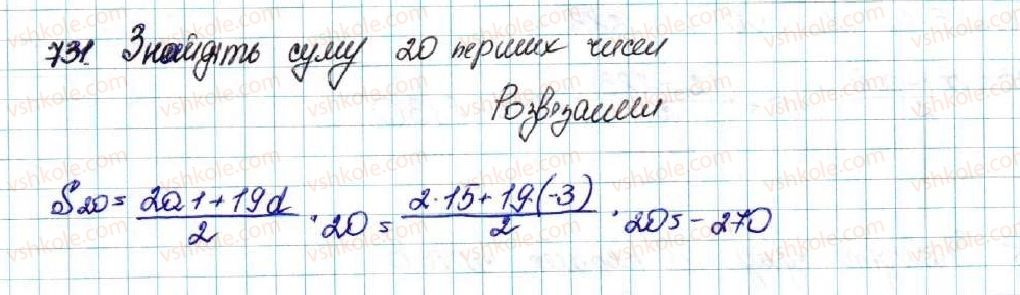 731. Знайдіть суму 20 перших чисел
Розв'язання
S₂₀ = (2a₁ + 19d)/2 · 20 = (2·15 + 19·(-3))/2 · 20 = -270